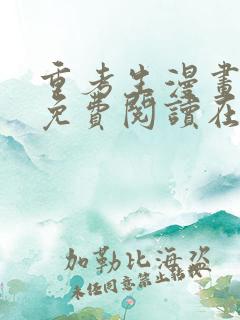 重考生漫畫
免費閱讀在
加勒比海盜
未经同意禁止转载